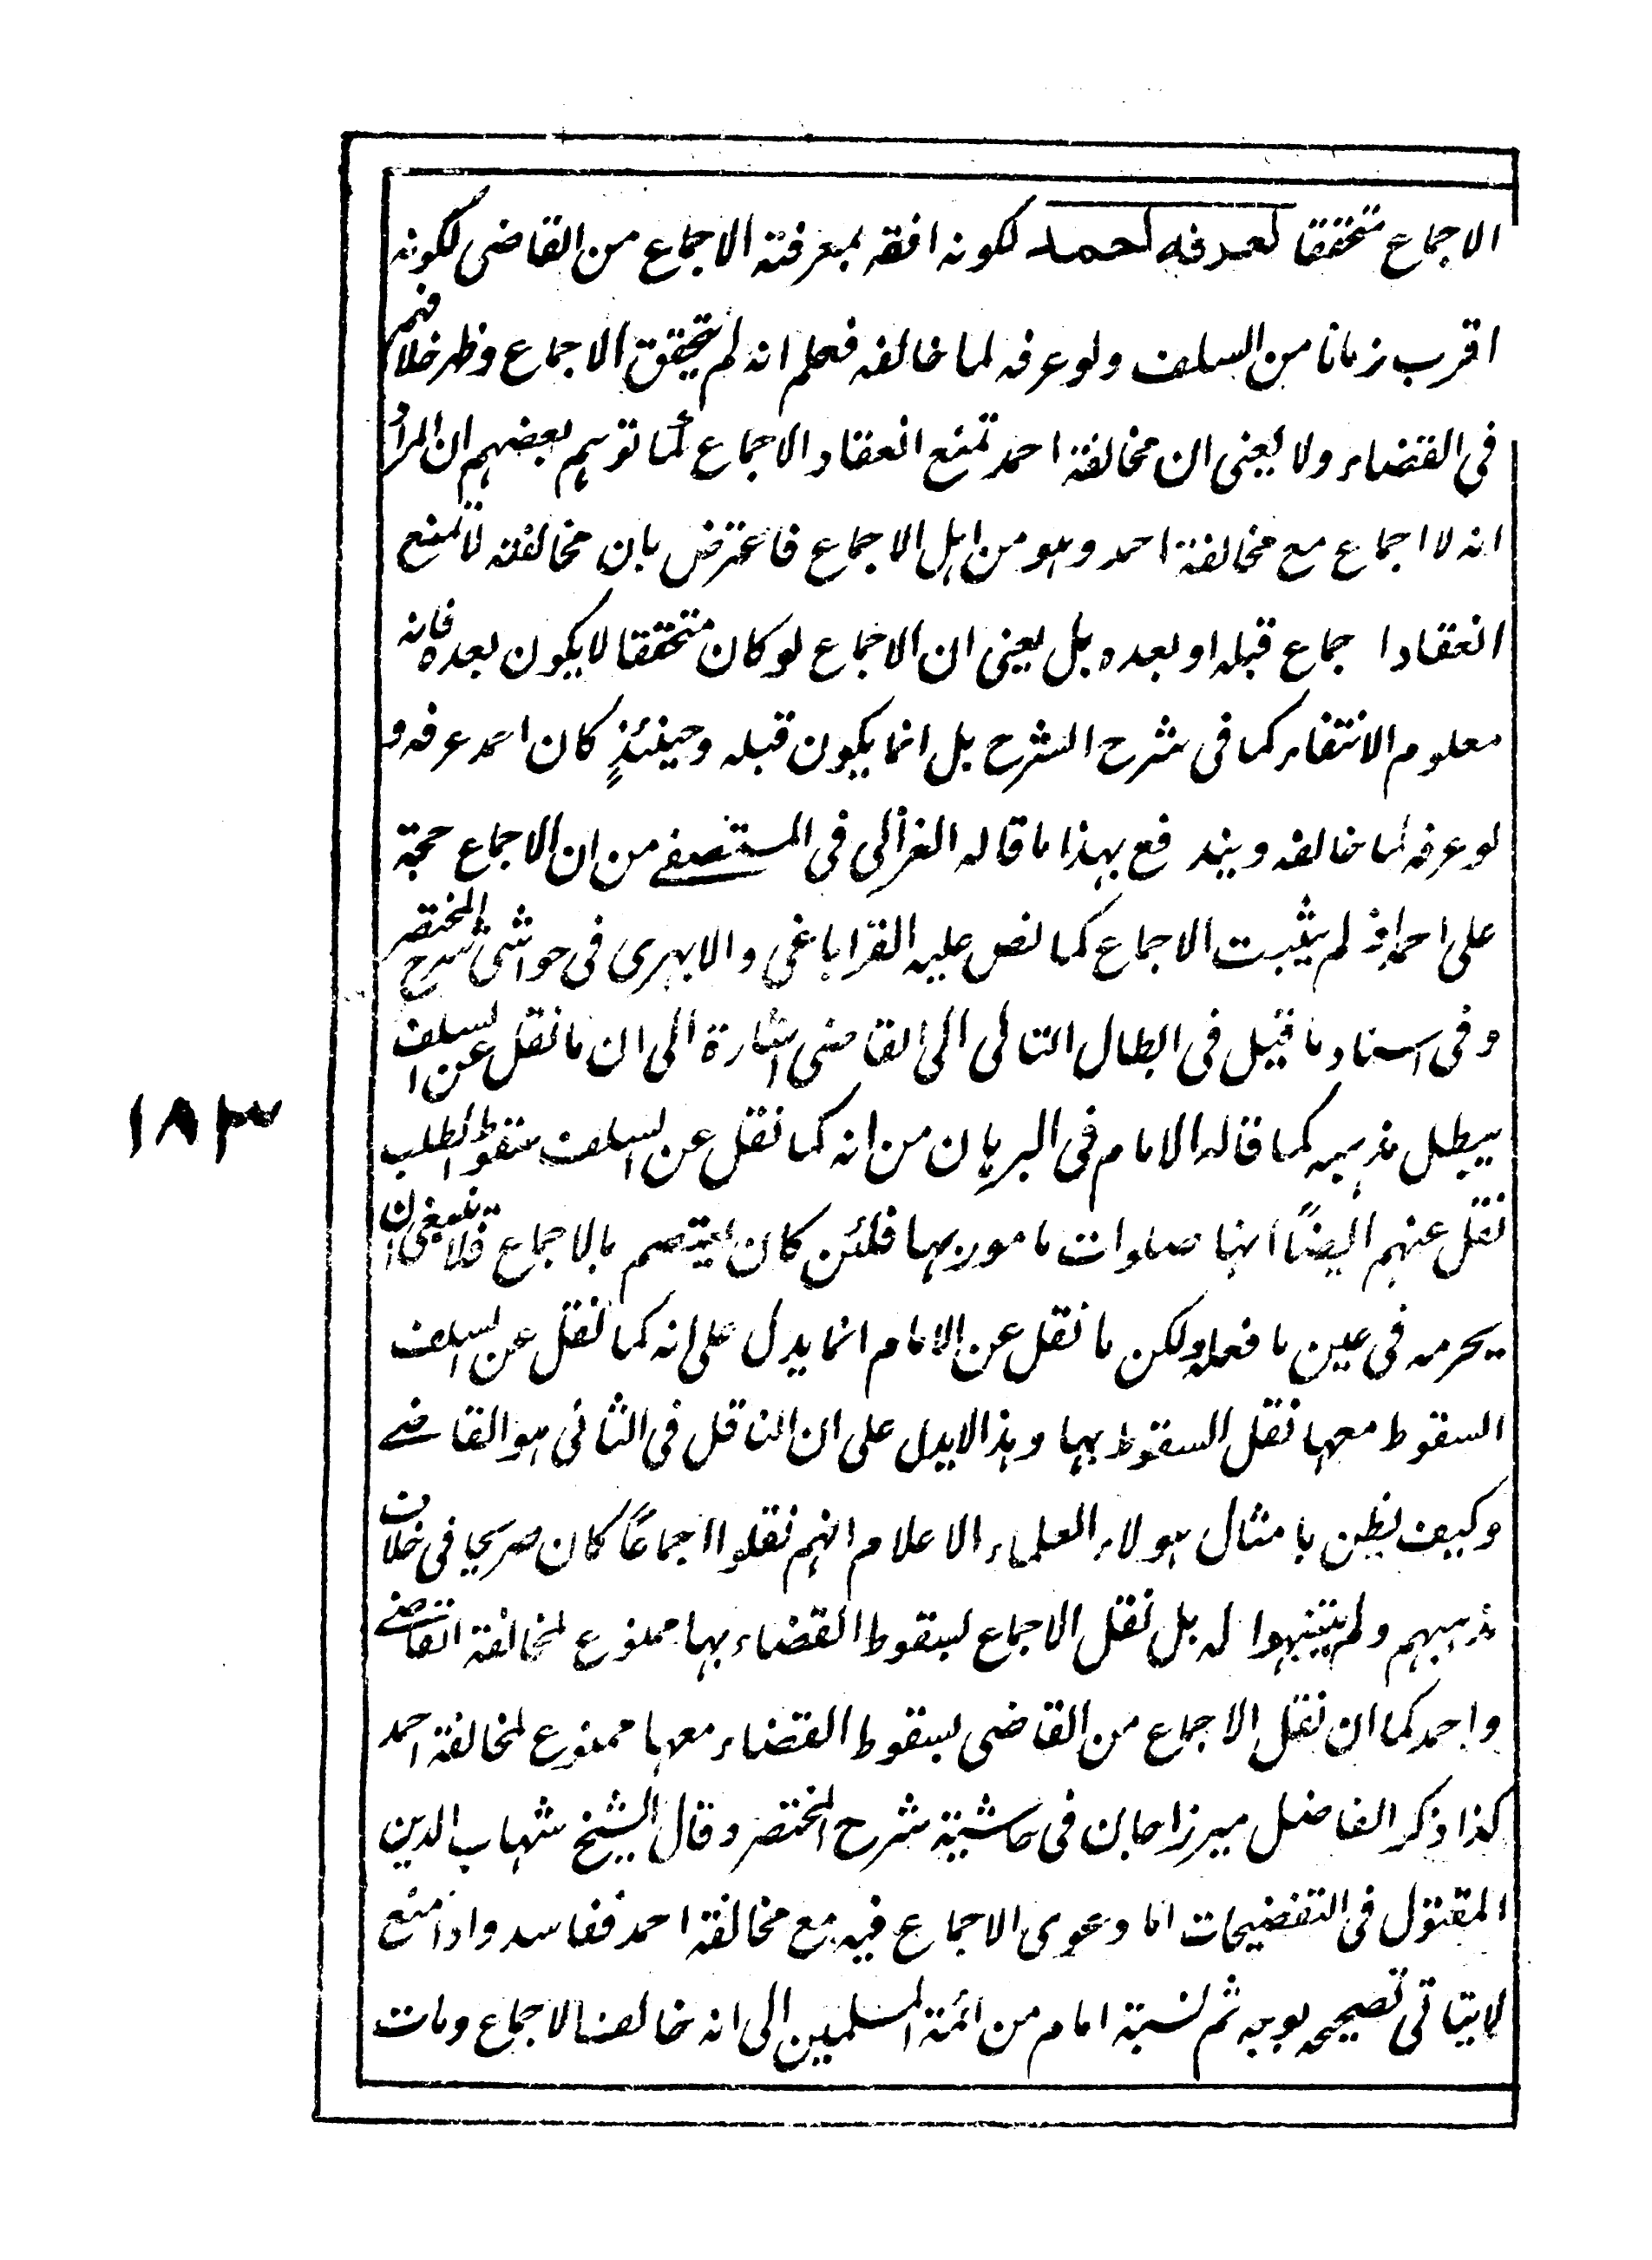 الاجماع متحققا لعرفه احمد لكونه افقه بمعرفة الاجماع من القاضى لكونه
اقرب زمانا من السلف ولو عرفه لما خالفه فعلم انه لم يتحقق الاجماع وظهر خلافهم
فى القضاء ولا يعنى ان مخالفة احمد تمنع انعقاد الاجماع لما توهم بعضهم ان المراد
انه لا اجماع مع مخالفة احمد وهو من اهل الاجماع فاعترض بان مخالفته لا تمنع
انعقاد اجماع قبله او بعده بل يعنى ان الاجماع لو كان متحققا لا يكون بعده فانه
معلوم الانتفاء كما فى شرح الشرح بل انما يكون قبله وحينئذٍ كان احمد عرفه و
لو عرفه لما خالفه ويندفع بهذا ما قاله الغزالى فى المستصفے من ان الاجماع حجة
على احمد اذ لم يثبت الاجماع كما نص عليه القراباغى والابهرى فى حواشى شرح المختصر
وفى اسناد ما قيل فى ابطال التالى الى القاضى اشارة الى ان ما نقل عن السلف
يبطل مذهبه كما قاله الامام فى البرهان من انه كما نقل عن السلف سقوط الطلب
نقل عنهم ايضًا انها صلوات مامور بها فلئن كان يعتصم بالاجماع فلا ينبغى ان
يحرمه فى عين ما فعله ولكن ما نقل عن الامام انما يدل على انه كما نقل عن السلف
السقوط معها نقل السقوط بها وهذا لا يدل على ان الناقل فى الثانى هو القاضے
وكيف يظن بامثال هولاء العلماء الاعلام انهم نقلوا اجماعًا كان صريحا فى خلاف
مذهبهم ولم يتنبهوا له بل نقل الاجماع لسقوط القضاء بها ممنوع لمخالفة القاضے
واحمد كما ان نقل الاجماع من القاضى لسقوط القضاء معها ممنوع لمخالفة احمد
كذا ذكر الفاضل ميرزا جان فى حاشية شرح المختصر وقال الشيخ شهاب الدين
المقتول فى التنقيحات اما دعوى الاجماع فيه مع مخالفة احمد ففاسد واذا منع
لا يتاتى تصحيحه بوجه ثم نسبة امام من ائمة المسلمين الى انه خالف الاجماع ومات
١٨٣